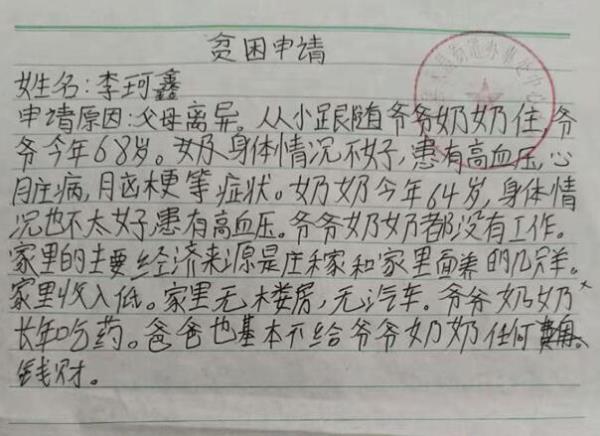 贫困申请
姓名:李珂鑫
申请原因:父母离异。从小跟随爷爷奶奶住,爷
爷今年68岁。身体情况不好,患有高血压,心
脏病,脑梗等症状。奶奶今年64岁,身体情
况也不太好,患有高血压。爷爷奶奶都没有工作。
家里的主要经济来源是庄稼和家里面养的几只羊。
家里收入低。家里无楼房,无汽车。爷爷奶奶
长年吃药。爸爸也基本不给爷爷奶奶任何
钱财。
街道办事处